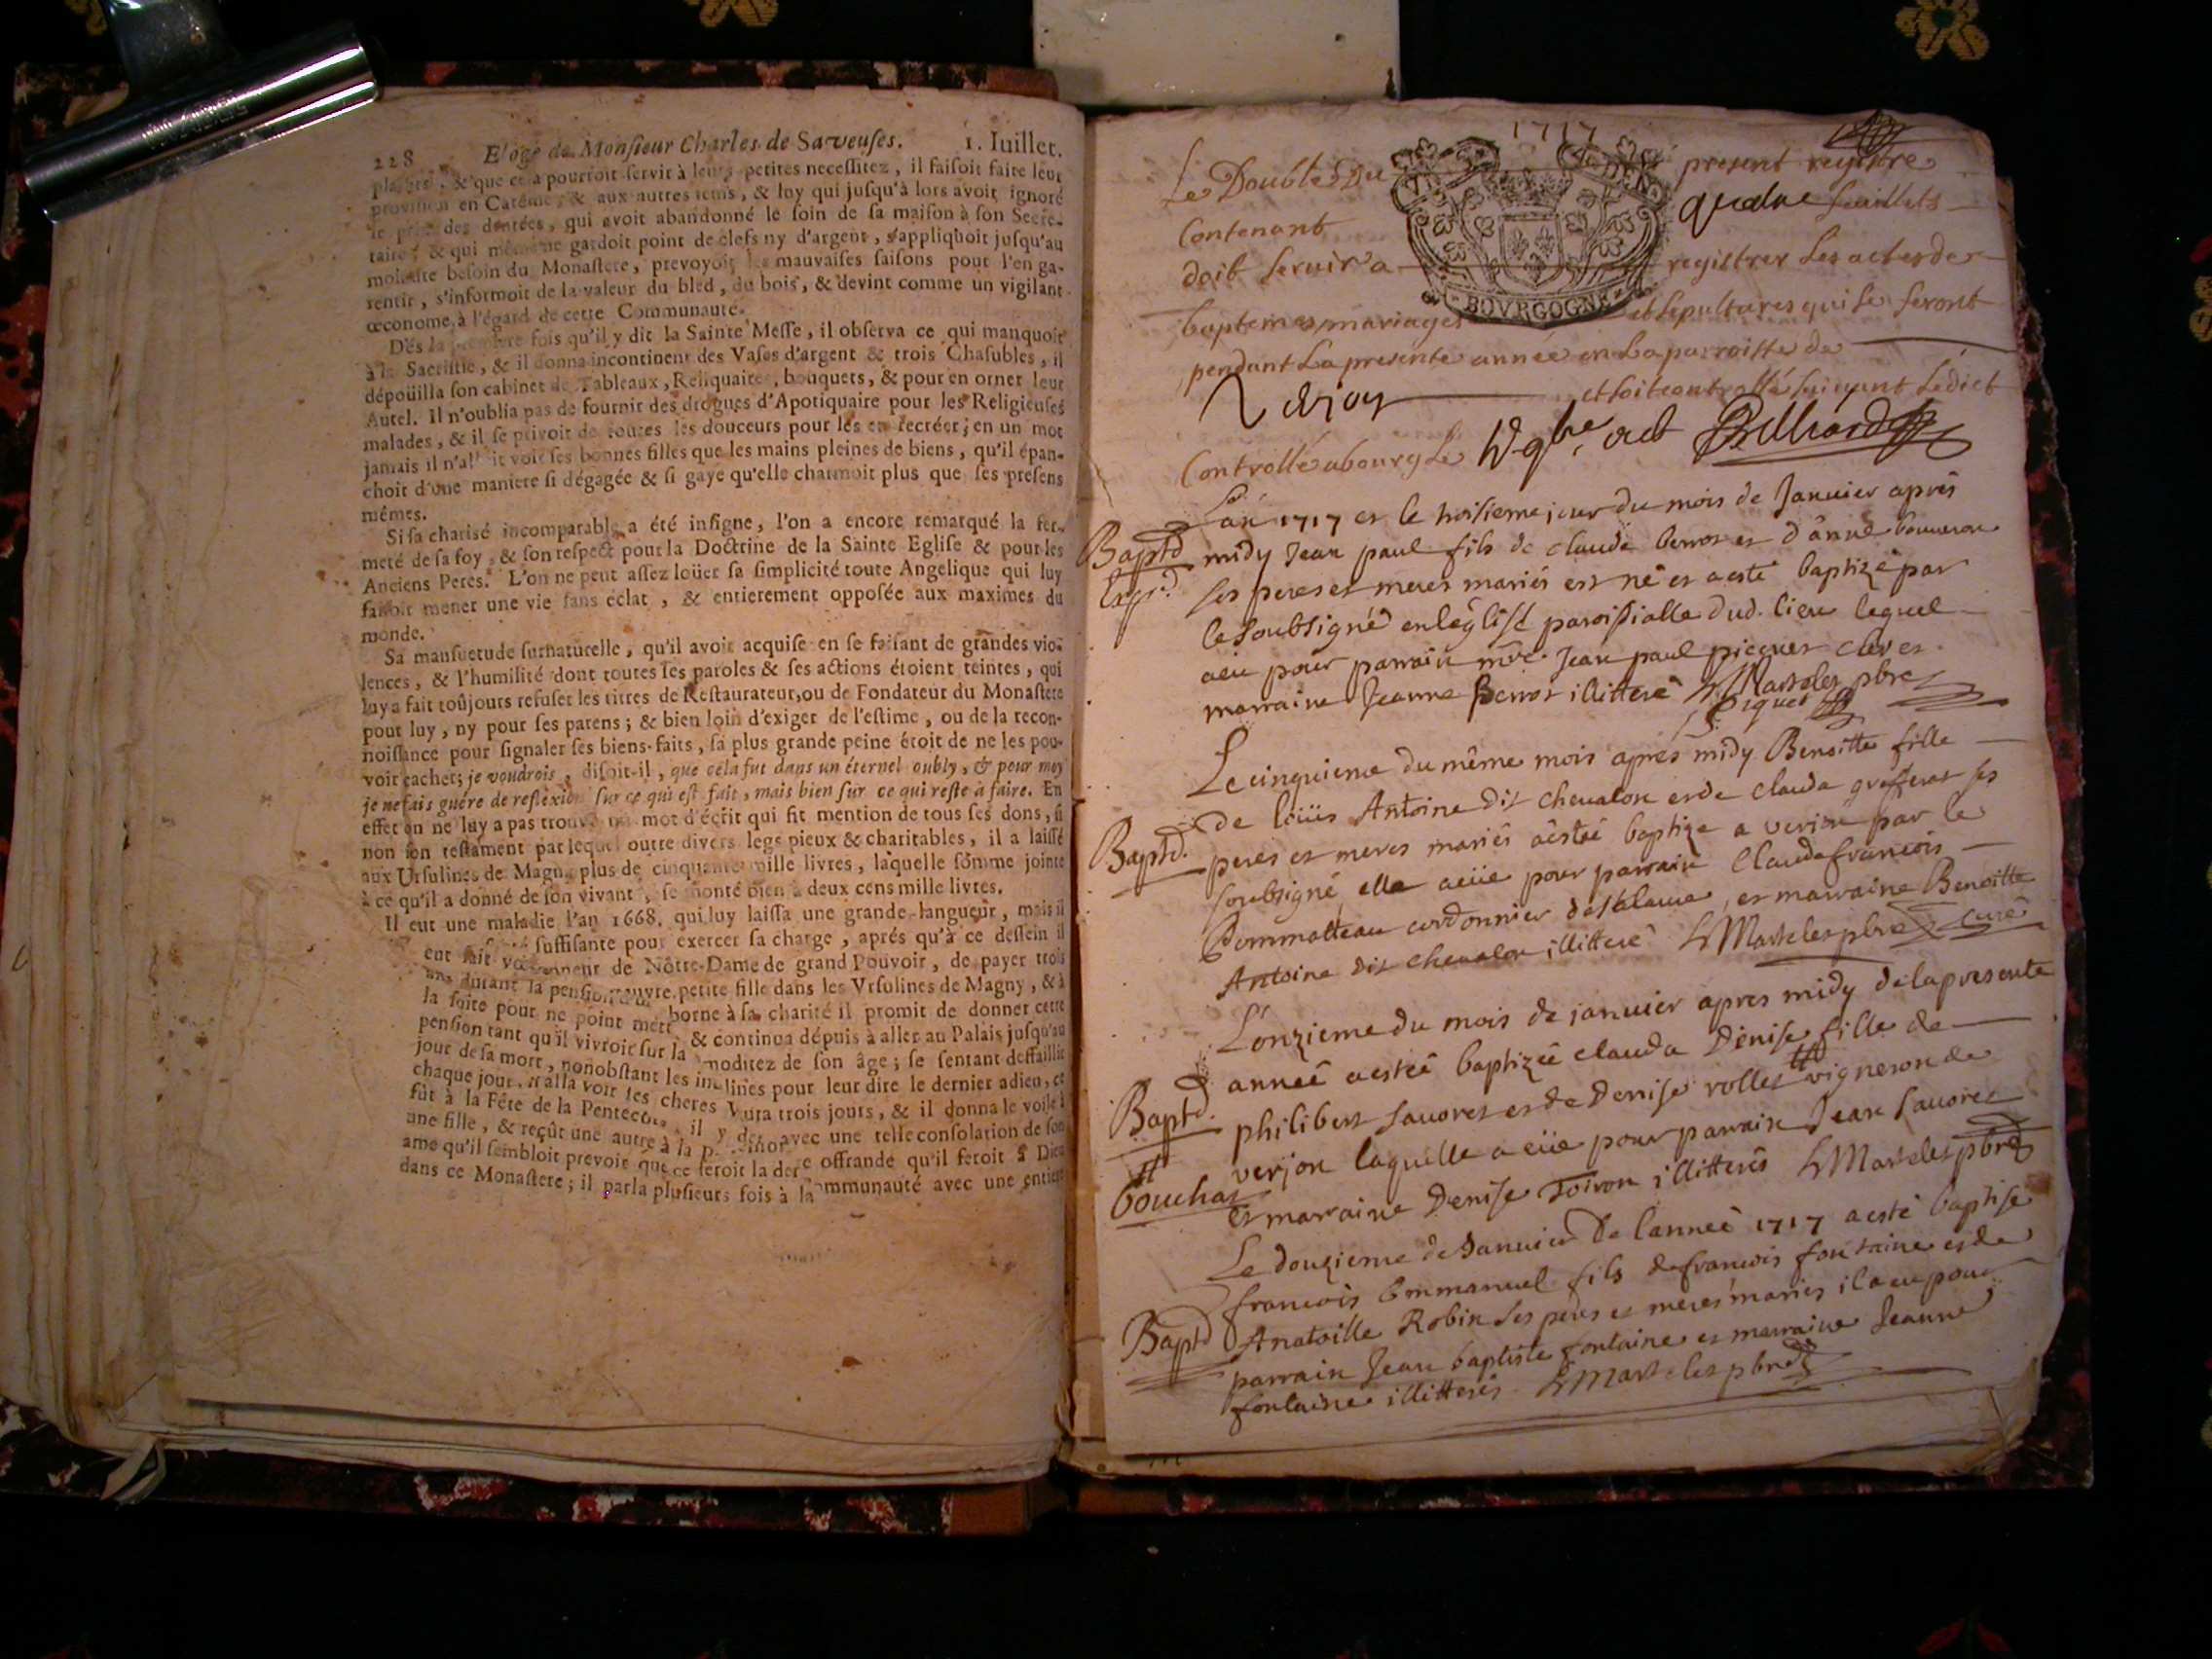 228 Eloge de Monsieur Charles de Saveuses. 1. Iuillet.
& que cela pourroit servir à leurs petites necessitez, il faisoit faire leur
provision en Carême, & aux autres tems, & luy qui jusqu'à lors avoit ignoré
le prix des denrées, qui avoit abandonné le soin de sa maison à son Secre-
taire, & qui même ne gardoit point de clefs ny d'argent, s'appliquoit jusqu'au
moindre besoin du Monastere, prevoyoit les mauvaises saisons pour l'en ga-
rentir, s'informoit de la valeur du bled, du bois, & devint comme un vigilant
œconome à l'égard de cette Communauté.
Dés la premiere fois qu'il y dit la Sainte Messe, il observa ce qui manquoit
à la Sacristie, & il donna incontinent des Vases d'argent & trois Chasubles, il
dépoüilla son cabinet de Tableaux, Reliquaires, bouquets, & pour en orner leur
Autel. Il n'oublia pas de fournir des drogues d'Apotiquaire pour les Religieuses
malades, & il se privoit de toutes les douceurs pour les en recréer; en un mot
jamais il n'alloit voir ses bonnes filles que les mains pleines de biens, qu'il épan-
choit d'une maniere si dégagée & si gaye qu'elle charmoit plus que ses presens
mêmes.
Si sa charité incomparable a été insigne, l'on a encore remarqué la fer-
meté de sa foy, & son respect pour la Doctrine de la Sainte Eglise & pour les
Anciens Peres. L'on ne peut assez loüer sa simplicité toute Angelique qui luy
faisoit mener une vie sans éclat, & entierement opposée aux maximes du
monde.
Sa mansuetude surnaturelle, qu'il avoit acquise en se faisant de grandes vio-
lences, & l'humilité dont toutes ses paroles & ses actions étoient teintes, qui
luy a fait toûjours refuser les titres de Restaurateur, ou de Fondateur du Monastere
pour luy, ny pour ses parens; & bien loin d'exiger de l'estime, ou de la recon-
noissance pour signaler ses biens-faits, sa plus grande peine étoit de ne les pou-
voir cacher; je voudrois, disoit-il, que cela fut dans un éternel oubly, & pour moy
je ne fais guére de reflexion sur ce qui est fait, mais bien sur ce qui reste à faire. En
effet on ne luy a pas trouvé un mot d'écrit qui fit mention de tous ses dons, si
non son testament par lequel outre divers legs pieux & charitables, il a laissé
aux Ursulines de Magny plus de cinquante mille livres, laquelle somme jointe
à ce qu'il a donné de son vivant, se monte bien à deux cens mille livres.
Il eut une maladie l'an 1668. qui luy laissa une grande langueur, mais il
suffisante pour exercer sa charge, aprés qu'à ce dessein il
eut fait vœu de Nôtre-Dame de grand Pouvoir, de payer trois
ans durant la pension petite fille dans les Vrsulines de Magny, & à
la suite pour ne point borne à sa charité il promit de donner cette
pension tant qu'il vivroit sur la & continua dépuis à aller au Palais jusqu'au
jour de sa mort, nonobstant les de son âge; se sentant deffaillir
chaque jour, il alla voir ses cheres pour leur dire le dernier adieu, ce
fut à la Fête de la Pentecoste, il y trois jours, & il donna le voile à
une fille, & reçût une autre à la avec une telle consolation de son
ame qu'il sembloit prevoir que ce seroit la offrande qu'il feroit à Dieu
dans ce Monastere; il parla plusieurs fois à la Communauté avec une entiere
1717
Le Double Du present registre
Contenant quatre feuillets
doit servir a registrer les actes de
BOVRGOGNE
baptemes mariages et sepultures qui se feront
pendant la presente année en la parroisse de
Verjon et soit controllé suivant l'edict
Controllé a bourg le
L'an 1717 et le troisieme jour du mois de Janvier aprés
Baptd midy Jean paul fils de claude berrot et d'anne
ses peres et meres mariés est né et a esté baptizé par
le soubsigné en l'église paroissialle dud. lieu lequel
a eu pour parrain mre Jean paul picquet et
marraine Jeanne Berrot illitteré pbre
Piquet
Le cinquieme du même mois aprés midy Benoitte fille
de loüis Antoine Dit chevalon et de clauda ses
Baptd. peres et meres mariés a estéé baptize a verjon par le
soubsigné, elle a eüe pour parrain Claude francois
Pommatteau cordonnier de et marraine Benoitte
Antoine dit chevalon illitteré pbre curé
L'onzieme du mois de janvier apres midy de la presente
Baptd. anneé a estéé baptizéé clauda Denise fille de
philibert savoret et de Denise rollet vigneron de
verjon laquelle a eüe pour parrain Jean savoret
bouchar et marraine Denise illitterés pbre
Le douzieme de Janvier de l'anneé 1717 a esté baptise
francois Emmanuel fils de francois fontaine et de
Baptd Anatoille Robin ses peres et meres mariés il a eu pour
parrain Jean baptiste fontaine et marraine Jeanne
fontaine illitterés pbre